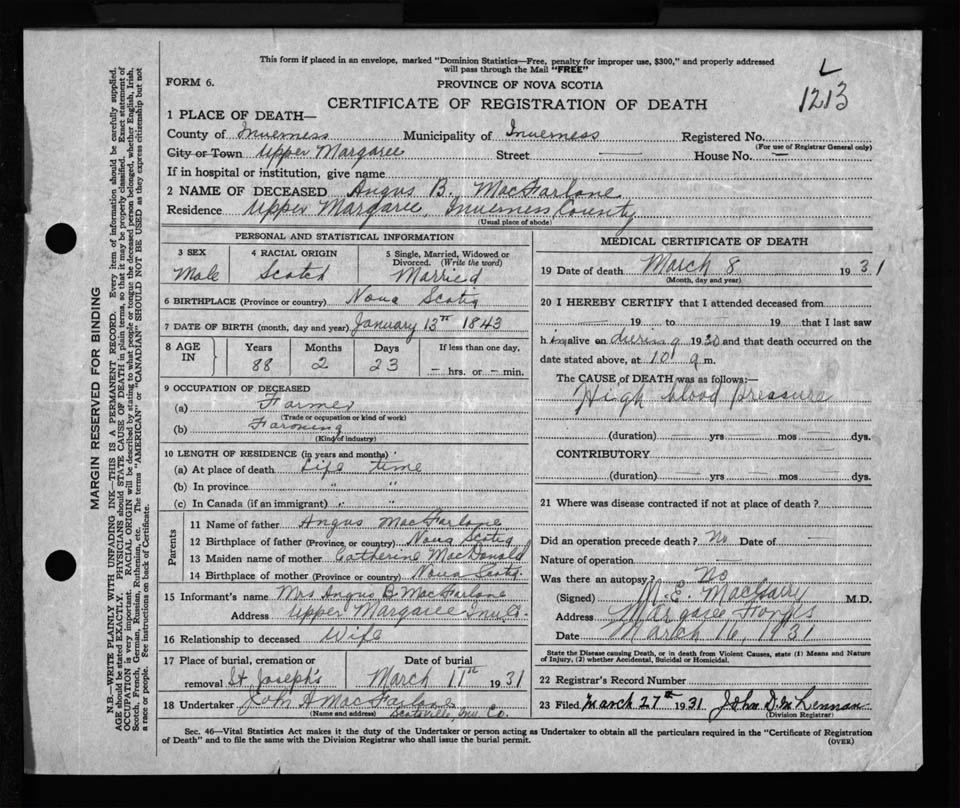 This form if placed in an envelope, marked "Dominion Statistics—Free, penalty for improper use, $300," and properly addressed
will pass through the Mail "FREE"
L
1213
FORM 6.
PROVINCE OF NOVA SCOTIA
CERTIFICATE OF REGISTRATION OF DEATH
1 PLACE OF DEATH—
County of Inverness Municipality of Inverness Registered No.
(For use of Registrar General only)
City or Town Upper Margaree Street — House No. —
If in hospital or institution, give name
2 NAME OF DECEASED Angus B. MacFarlane
Residence Upper Margaree, Inverness County
(Usual place of abode)
PERSONAL AND STATISTICAL INFORMATION
3 SEX 4 RACIAL ORIGIN 5 Single, Married, Widowed or
Divorced. (Write the word)
Male Scotch Married
6 BIRTHPLACE (Province or country) Nova Scotia
7 DATE OF BIRTH (month, day and year) January 13th 1843
8 AGE IN Years Months Days If less than one day,
88 2 23 — hrs. or — min.
9 OCCUPATION OF DECEASED
(a) Farmer
(Trade or occupation or kind of work)
(b) Farming
(Kind of industry)
10 LENGTH OF RESIDENCE (in years and months)
(a) At place of death Life time
(b) In province " "
(c) In Canada (if an immigrant) " "
Parents
11 Name of father Angus MacFarlane
12 Birthplace of father (Province or country) Nova Scotia
13 Maiden name of mother Catherine MacDonald
14 Birthplace of mother (Province or country) Nova Scotia
15 Informant's name Mrs Angus B MacFarlane
Address Upper Margaree Inv. Co.
16 Relationship to deceased Wife
17 Place of burial, cremation or removal St Joseph's
Date of burial March 11th 1931
18 Undertaker John A MacFarlane
(Name and address) Scotsville Inv Co.
MEDICAL CERTIFICATE OF DEATH
19 Date of death March 8 1931
(Month, day and year)
20 I HEREBY CERTIFY that I attended deceased from
— 19 to — 19 that I last saw
him alive on during 1930 and that death occurred on the
date stated above, at 10 a m.
The CAUSE of DEATH was as follows:—
High blood pressure
(duration) — yrs — mos — dys.
CONTRIBUTORY
(duration) — yrs — mos — dys.
21 Where was disease contracted if not at place of death?
Did an operation precede death? No Date of —
Nature of operation
Was there an autopsy? No
(Signed) M.E. M.D.
Address Margaree Forks
Date March 16, 1931
State the Disease causing Death, or in death from Violent Causes, state (1) Means and Nature
of Injury, (2) whether Accidental, Suicidal or Homicidal.
22 Registrar's Record Number
23 Filed March 27th 1931 John D. McLennan
(Division Registrar)
Sec. 46—Vital Statistics Act makes it the duty of the Undertaker or person acting as Undertaker to obtain all the particulars required in the "Certificate of Registration
of Death" and to file the same with the Division Registrar who shall issue the burial permit.
(OVER)
MARGIN RESERVED FOR BINDING
N.B.—WRITE PLAINLY WITH UNFADING INK—THIS IS A PERMANENT RECORD. Every item of information should be carefully supplied.
AGE should be stated EXACTLY. PHYSICIANS should STATE CAUSE OF DEATH in plain terms, so that it may be properly classified. Exact statement of
OCCUPATION is very important. RACIAL ORIGIN will be described by stating to what people or tongue the deceased person belonged, whether English, Irish,
Scotch, French, German, Russian, Ruthenian, etc. The terms "AMERICAN" or "CANADIAN" SHOULD NOT BE USED as they express citizenship but not
a race or people. See instructions on back of Certificate.